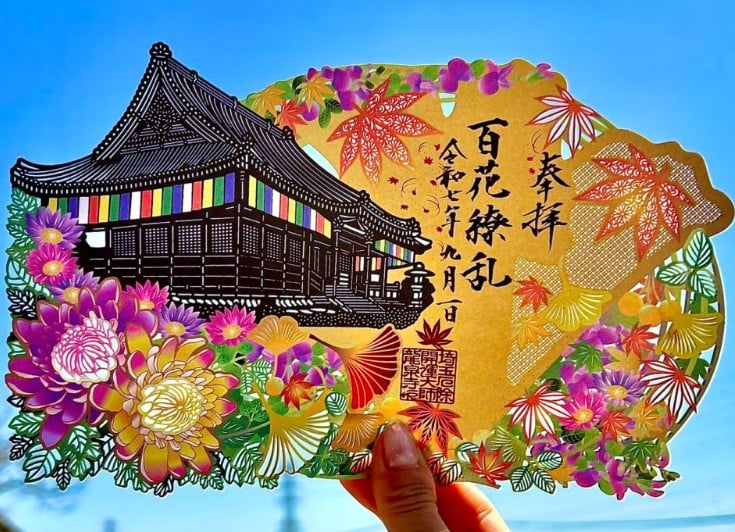 奉拝
百花繚乱
令和七年九月一日
埼玉厄除
開運大師
龍泉寺印